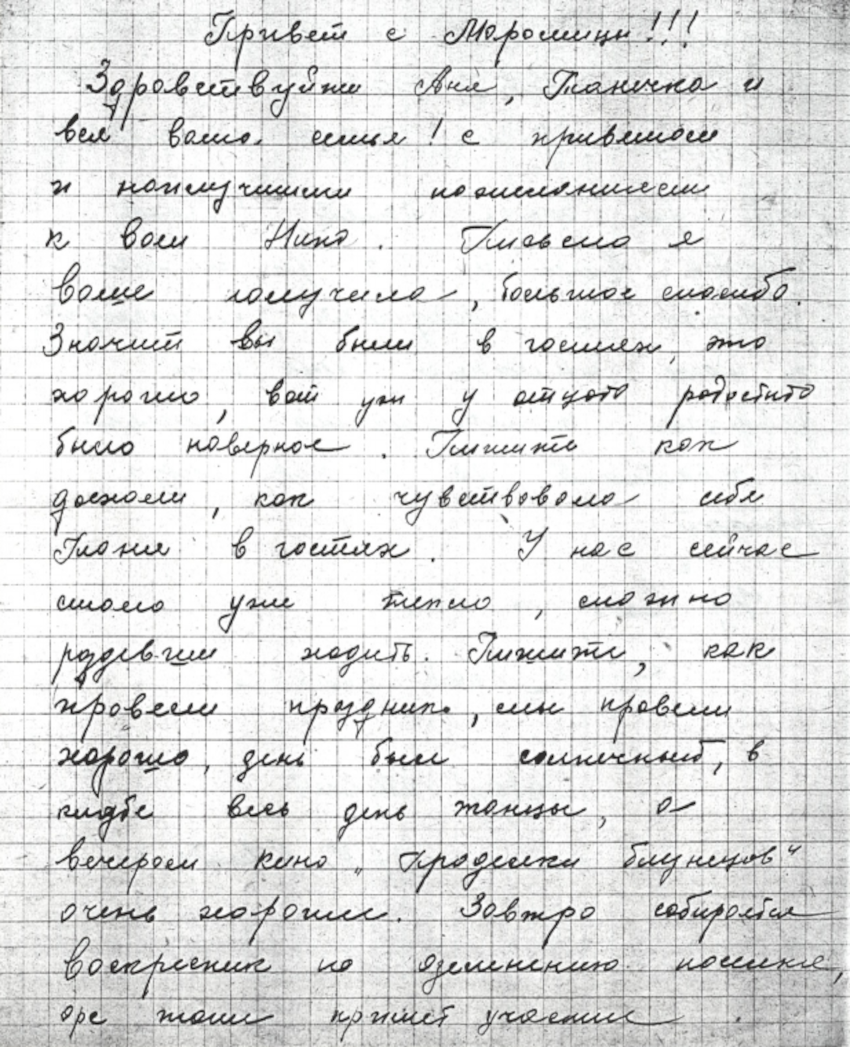 Привет с Моромицы!!!
Здравствуйте Аня, Танечка и
вся ваша семья! с приветом
и наилучшими пожеланиями
к вам Нина. Письмо я
ваше получила, большое спасибо.
Значит вы были в гостях, это
хорошо, вот уж у отца то радости то
было наверное. Пишите как
доехали, как чувствовала себя
Таня в гостях. У нас сейчас
стало уже тепло, можно
раздевши ходить. Пишите, как
провели праздник, мы провели
хорошо, день был солнечный, в
клубе весь день танцы, а
вечером кино „Проделки близнецов"
очень хороший. Завтра собирается
воскресник по озеленению поселка,
все тоже примет участие.